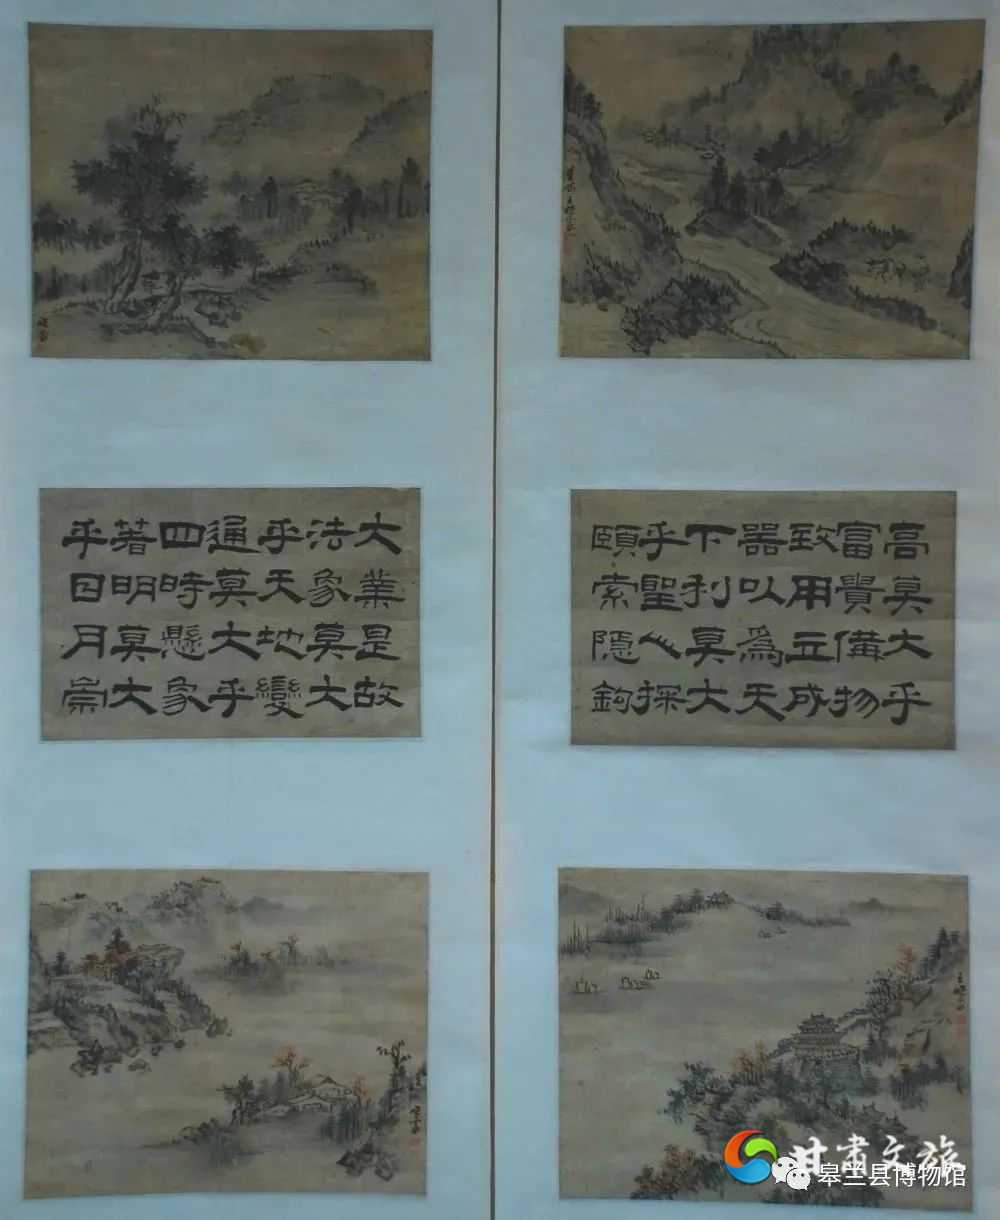 大業是故
法象莫大
乎天地變
通莫大乎
四時懸象
著明莫大
乎日月崇
高莫大乎
富貴備物
致用立成
器以爲天
下利莫大
乎聖人探
頤索隱鉤
甘肃文旅
皋兰县博物馆